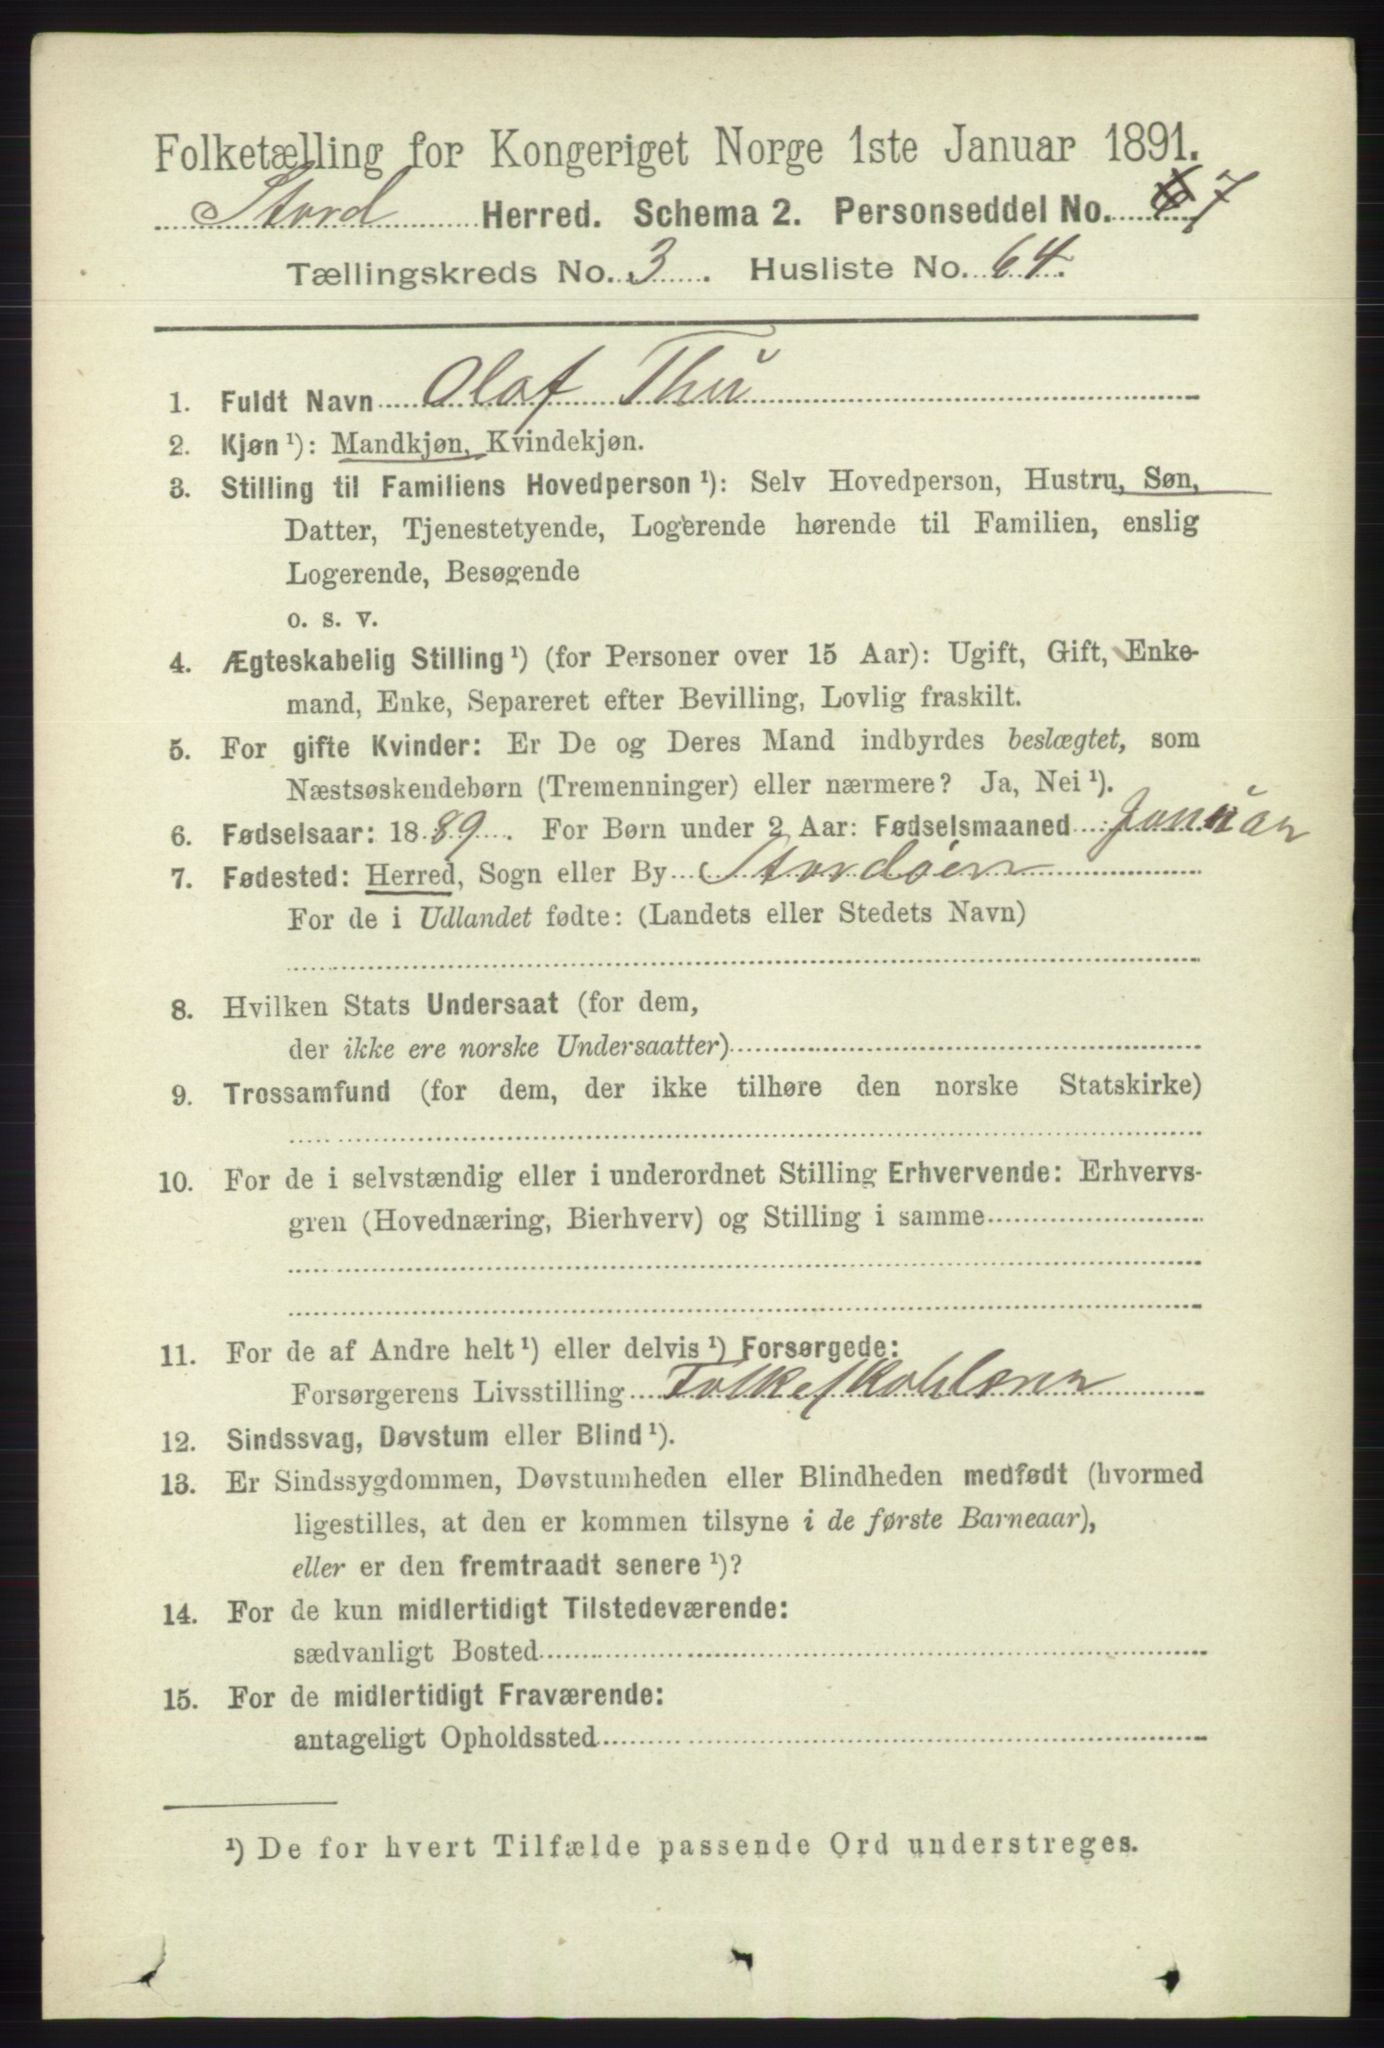 Folketælling for Kongeriget Norge 1ste Januar 1891.
Stord Herred. Schema 2. Personseddel No. 7
Tællingskreds No. 3. Husliste No. 64.
1. Fuldt Navn Olaf Thu
2. Kjøn ¹): Mandkjøn, Kvindekjøn.
3. Stilling til Familiens Hovedperson ¹): Selv Hovedperson, Hustru, Søn,
Datter, Tjenestetyende, Logerende hørende til Familien, enslig
Logerende, Besøgende
o. s. v.
4. Ægteskabelig Stilling ¹) (for Personer over 15 Aar): Ugift, Gift, Enke-
mand, Enke, Separeret efter Bevilling, Lovlig fraskilt.
5. For gifte Kvinder: Er De og Deres Mand indbyrdes beslægtet, som
Næstsøskendebørn (Tremenninger) eller nærmere? Ja, Nei ¹).
6. Fødselsaar: 1889. For Børn under 2 Aar: Fødselsmaaned Januar
7. Fødested: Herred, Sogn eller By Stordøen
For de i Udlandet fødte: (Landets eller Stedets Navn)
8. Hvilken Stats Undersaat (for dem,
der ikke ere norske Undersaatter)
9. Trossamfund (for dem, der ikke tilhøre den norske Statskirke)
10. For de i selvstændig eller i underordnet Stilling Erhvervende: Erhvervs-
gren (Hovednæring, Bierhverv) og Stilling i samme
11. For de af Andre helt ¹) eller delvis ¹) Forsørgede:
Forsørgerens Livsstilling Folkeskolelærer
12. Sindssvag, Døvstum eller Blind ¹).
13. Er Sindssygdommen, Døvstumheden eller Blindheden medfødt (hvormed
ligestilles, at den er kommen tilsyne i de første Barneaar),
eller er den fremtraadt senere ¹)?
14. For de kun midlertidigt Tilstedeværende:
sædvanligt Bosted
15. For de midlertidigt Fraværende:
antageligt Opholdssted
¹) De for hvert Tilfælde passende Ord understreges.